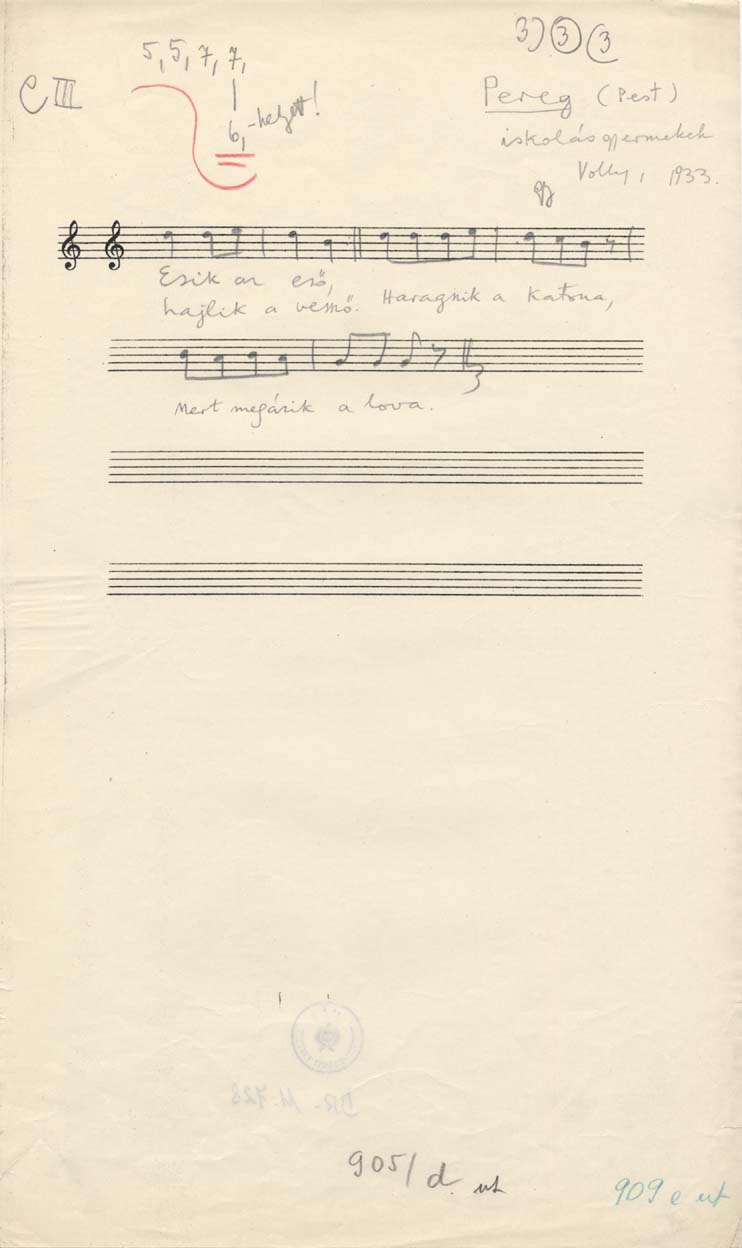 C III
5, 5, 7, 7,
6,-helyett!
3) 3 (3
Pereg (Pest)
iskolásgyermekek
Volly, 1933.
Esik az eső,
hajlik a vessző. Haragszik a katona,
Mert megázik a lova.
3
DR-M-728
905/d. ut
909 e ut